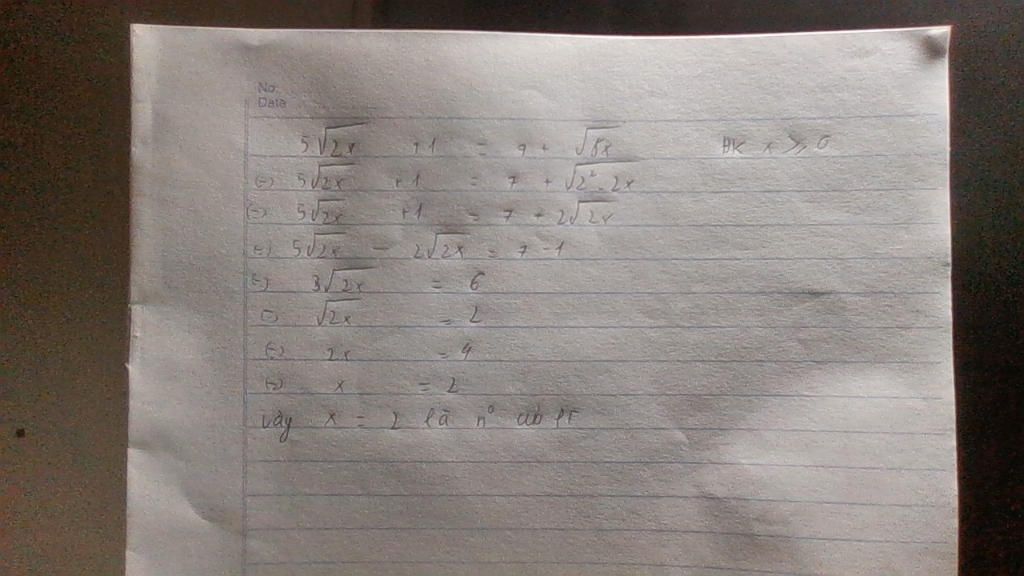 No.
Date
5√2x + 1 = 7 + √8x ĐK x ≥ 0
(=) 5√2x + 1 = 7 + √2².2x
(=) 5√2x + 1 = 7 + 2√2x
(=) 5√2x - 2√2x = 7 - 1
(=) 3√2x = 6
(=) √2x = 2
(=) 2x = 4
(=) x = 2
Vậy x = 2 là n⁰ của pt